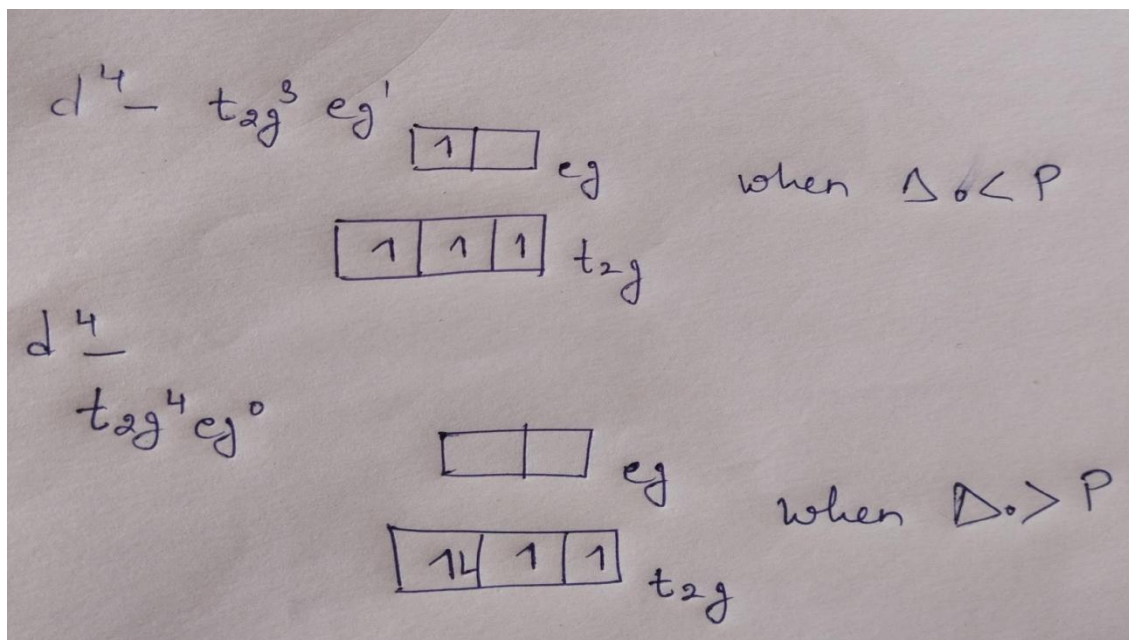 d⁴ - t₂g³ eg¹
1 eg when Δ₀ < P
1 1 1 t₂g
d⁴ -
t₂g⁴ eg⁰
eg when Δ₀ > P
1⇂ 1 1 t₂g